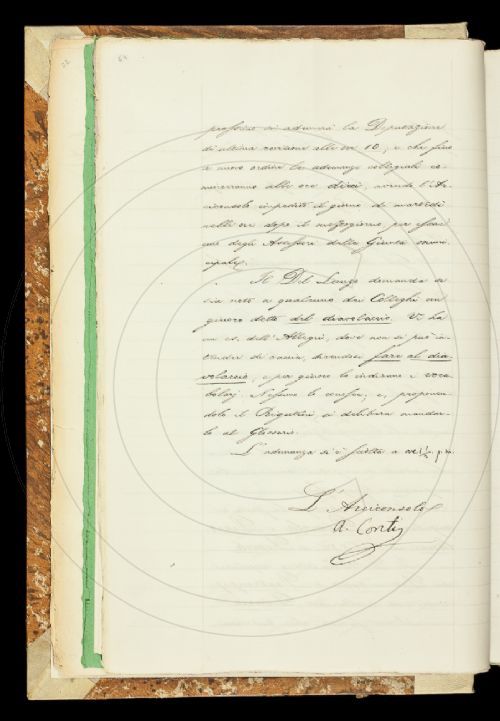 prossimo si adunerà la Deputazione
di ultima revisione alle ore 10; e che fino
a nuovo ordine le adunanze collegiali co-
minceranno alle ore dieci, avendo l'Ar-
ciconsolo impedito il giorno di martedì
nelle ore dopo il mezzogiorno per essere
uno degli Assessori della Giunta muni-
cipale.
Il Del Lungo domanda se
sia noto a qualcuno dei Colleghi un
giuoco detto del diavolaccio. Vi ha
un es. dell'Allegri, dove non si può in-
tender di caccia, dicendosi fare al dia-
volaccio, e per giuoco lo indicano i voca-
bolarj. Nessuno lo conosce; e, proponen-
dolo il Brigidi, si delibera mandar-
lo al Glossario.
L'adunanza si è sciolta a ore
L'Arciconsolo
A. Conti